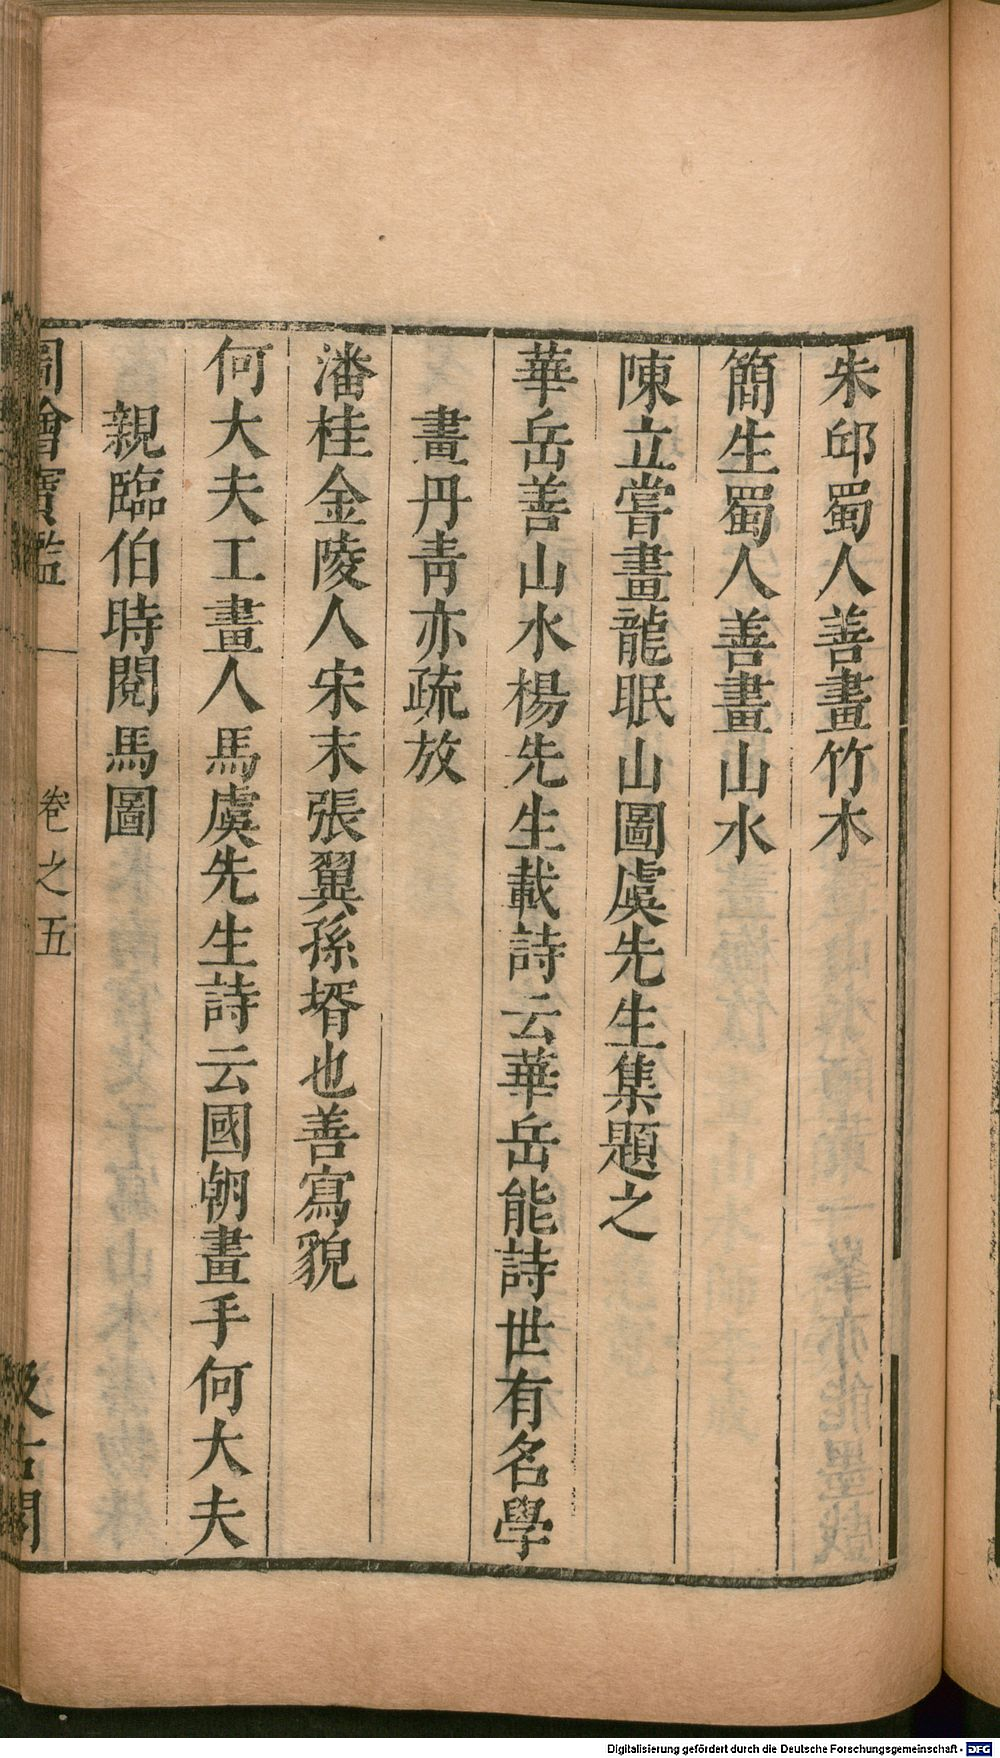 朱邱蜀人善畫竹木
簡生蜀人善畫山水
陳立嘗畫龍眠山圖虞先生集題之
華岳善山水楊先生載詩云華岳能詩世有名學
畫丹青亦疏放
潘桂金陵人宋末張翼孫壻也善寫貌
何大夫工畫人馬虞先生詩云國朝畫手何大夫
親臨伯時閱馬圖
圖繪寶鑑 卷之五 汲古閣
Digitalisierung gefördert durch die Deutsche Forschungsgemeinschaft - DFG